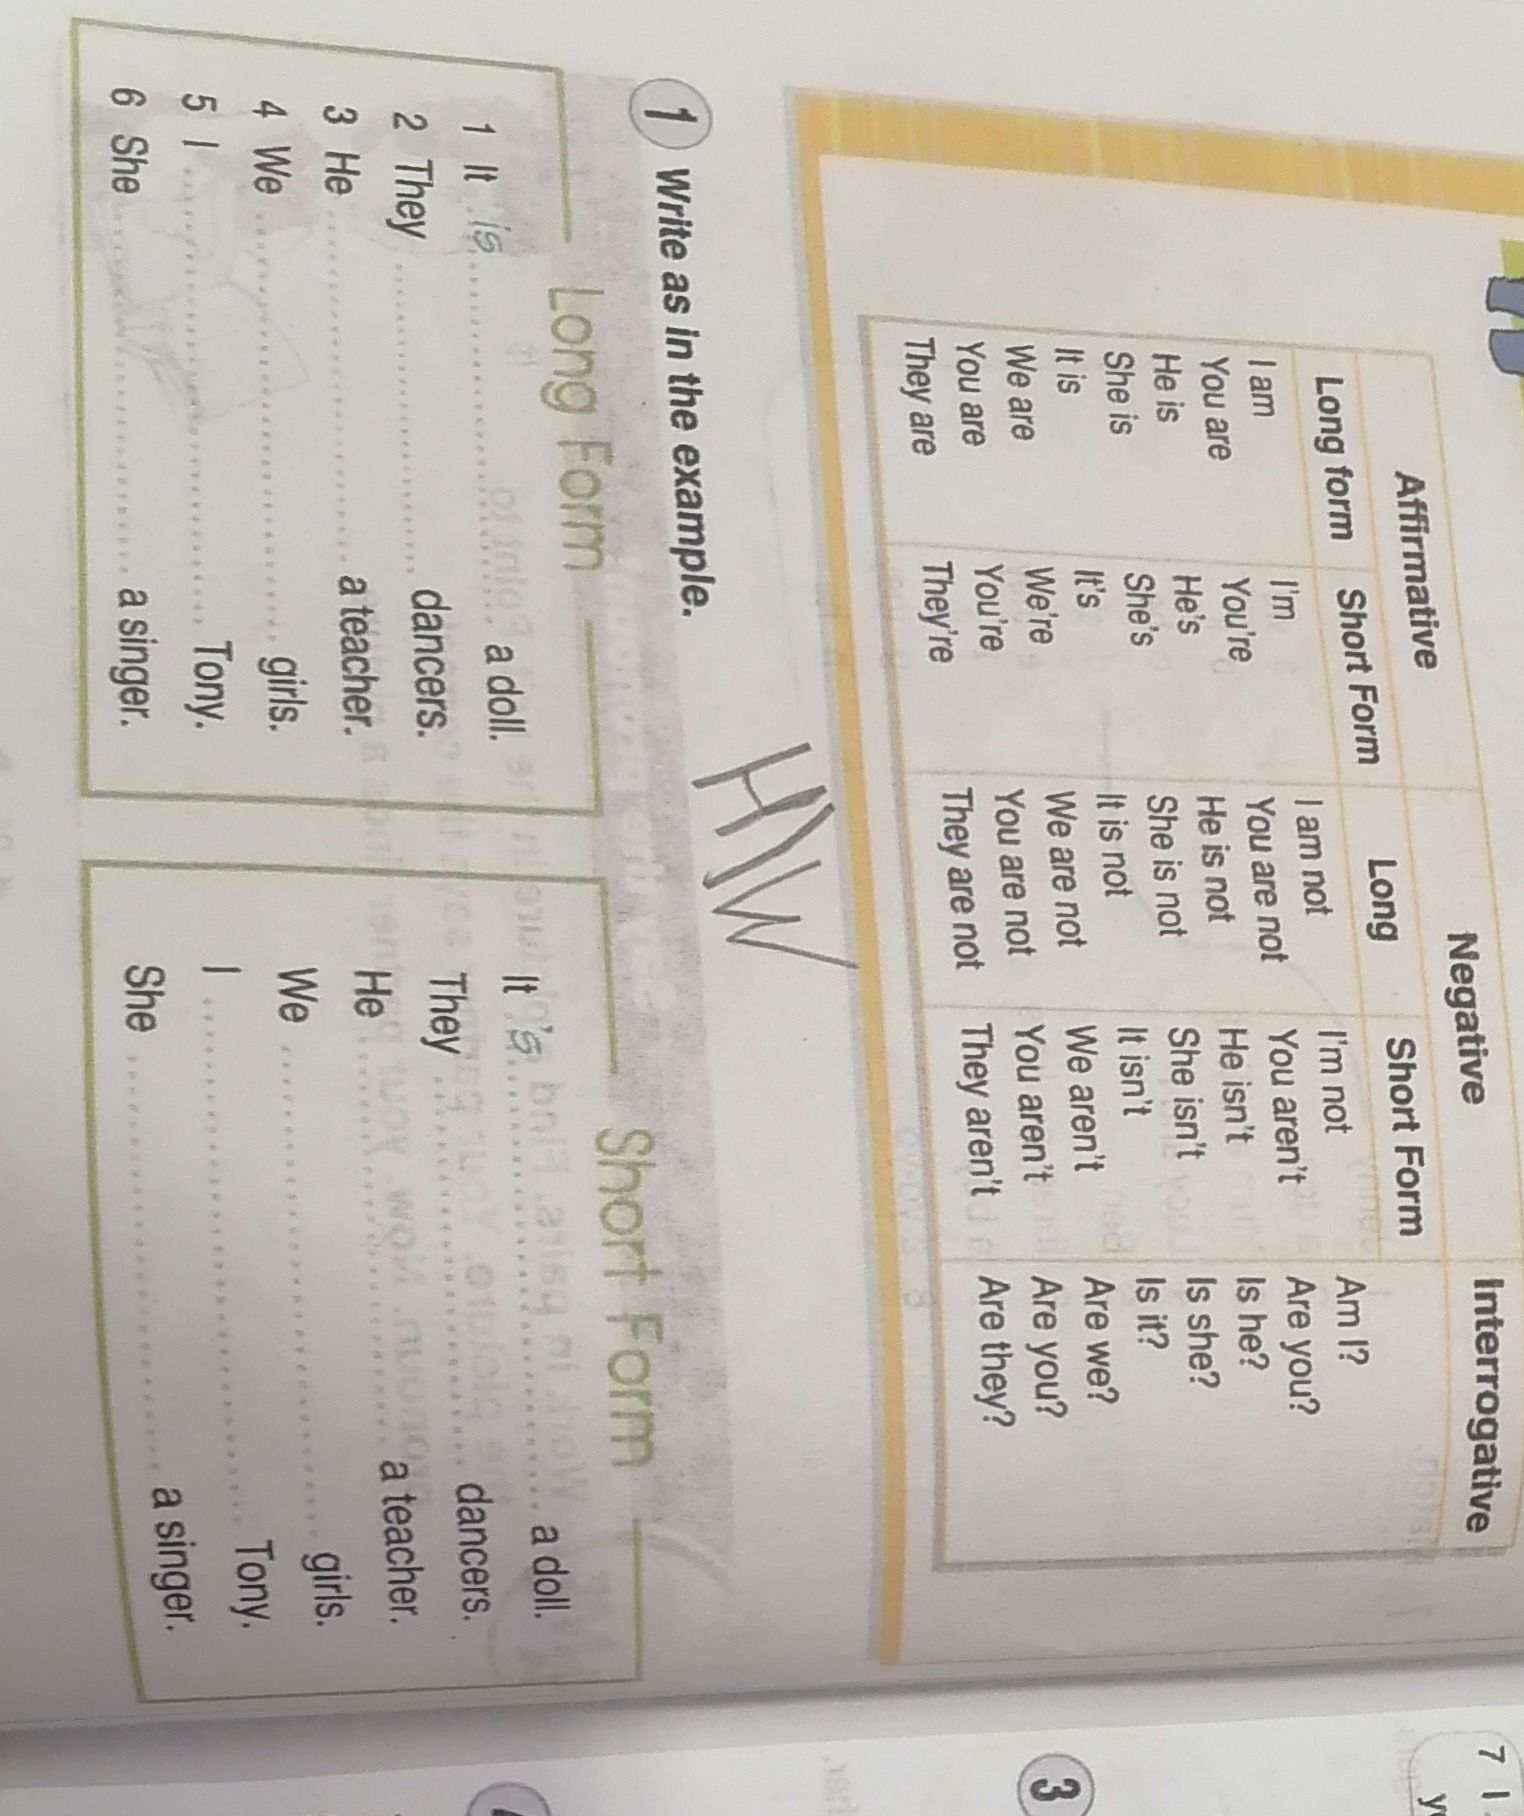 Affirmative Negative Interrogative
Long form Short Form Long Short Form
I am I'm I am not I'm not Am I?
You are You're You are not You aren't Are you?
He is He's He is not He isn't Is he?
She is She's She is not She isn't Is she?
It is It's It is not It isn't Is it?
We are We're We are not We aren't Are we?
You are You're You are not You aren't Are you?
They are They're They are not They aren't Are they?
H\W
1 Write as in the example.
Long Form
1 It is a doll.
2 They .......... dancers.
3 He .......... a teacher.
4 We .......... girls.
5 I .......... Tony.
6 She .......... a singer.
Short Form
It 's a doll.
They .......... dancers.
He .......... a teacher.
We .......... girls.
I .......... Tony.
She .......... a singer.
7 I
3